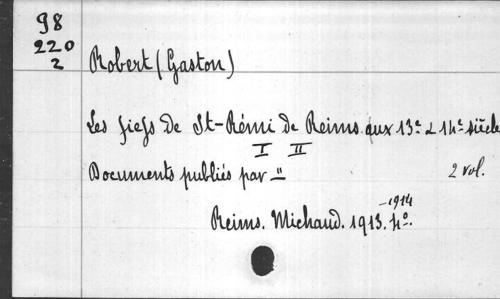 98
220
2
Robert (Gaston)
Les fiefs de St-Rémi de Reims aux 13e & 14e siècle
I II
Documents publiés par "
2 vol.
-1914
Reims. Michaud. 1913. 4°.